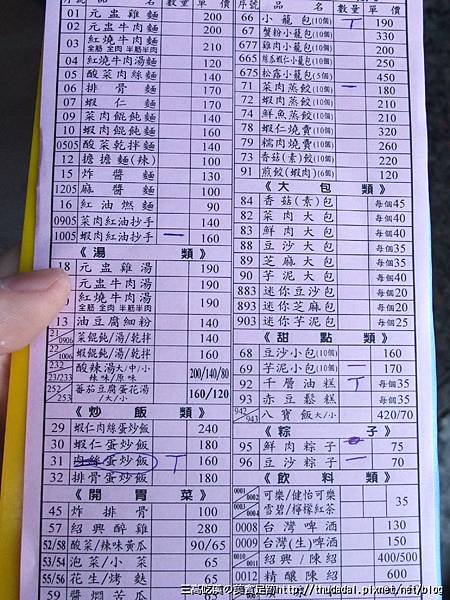 序號 品名 數量 單價
01 元盅雞麵 200
02 元盅牛肉麵 200
03 紅燒牛肉麵 全筋 全肉 半筋半肉 210
04 紅燒牛肉湯麵 120
05 酸菜肉絲麵 140
06 排骨麵 170
07 蝦仁麵 170
09 菜肉餛飩麵 140
10 蝦肉餛飩麵 160
0505 酸菜乾拌麵 140
12 擔擔麵(辣) 100
15 炸醬麵 120
1205 麻醬麵 120
16 紅油燃麵 90
0905 菜肉紅油抄手 140
1005 蝦肉紅油抄手 一 160
《湯類》
18 元盅雞湯 190
元盅牛肉湯 190
紅燒牛肉湯 全筋 全肉 半筋半肉 190
13 油豆腐細粉 140
21/0906 菜餛飩/湯/乾拌 140
22/1006 蝦餛飩/湯/乾拌 160
23/233 酸辣湯大/中/小 辣味/原味 200/140/80
252/253 番茄豆腐蛋花湯/大/小 160/120
《炒飯類》
29 蝦仁肉絲蛋炒飯 240
30 蝦仁蛋炒飯 180
31 肉絲蛋炒飯 T 160
32 排骨蛋炒飯 180
《開胃菜》
45 炸排骨 100
57 紹興醉雞 280
52/58 酸菜/辣味黃瓜 90/65
53/54 泡菜/小菜 65
55/56 花生/烤麩 65
59 燜苦瓜
序號 品名 數量 單價
66 小籠包(10個) T 190
67 蟹粉小籠包(10個) 330
677 雞肉小籠包(10個) 200
665 絲瓜蝦仁小籠包(10個) 250
675 松露小籠包(5個) 450
71 菜肉蒸餃(10個) 一 180
72 蝦肉蒸餃(10個) 210
74 鮮魚蒸餃(10個) 210
78 蝦肉燒賣(10個) 320
79 糯肉燒賣(10個) 260
73 香菇(素)餃(10個) 210
91 煎餃(蝦肉)(6個) 120
《大包類》
84 香菇(素)包 每個45
82 菜肉大包 每個40
83 鮮肉大包 每個40
88 豆沙大包 每個35
89 芝麻大包 每個35
90 芋泥大包 每個40
883 迷你豆沙包 每個20
893 迷你芝麻包 每個20
903 迷你芋泥包 每個25
《甜點類》
68 豆沙小包(10個) 160
69 芋泥小包(10個) 一 170
92 千層油糕 T 每個35
93 赤豆鬆糕 每個35
942/943 八寶飯大/小 420/70
《粽子》
95 鮮肉粽子 75
96 豆沙粽子 一 70
《飲料類》
0001/0004 可樂/健怡可樂 35
0002/0003 雪碧/檸檬紅茶
0008 台灣啤酒 130
0009 台灣(生)啤酒 150
0010/0011 紹興/陳紹 400/500
0012 精釀陳紹 600
三高吃貨の美食足跡http://thudadai.pixnet.net/blog